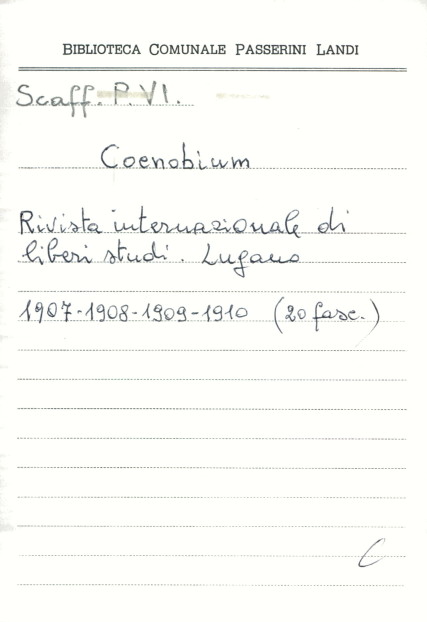 BIBLIOTECA COMUNALE PASSERINI LANDI
Scaff. P. VI.
Coenobium
Rivista internazionale di
liberi studi. Lugano
1907-1908-1909-1910 (20 fasc.)
C